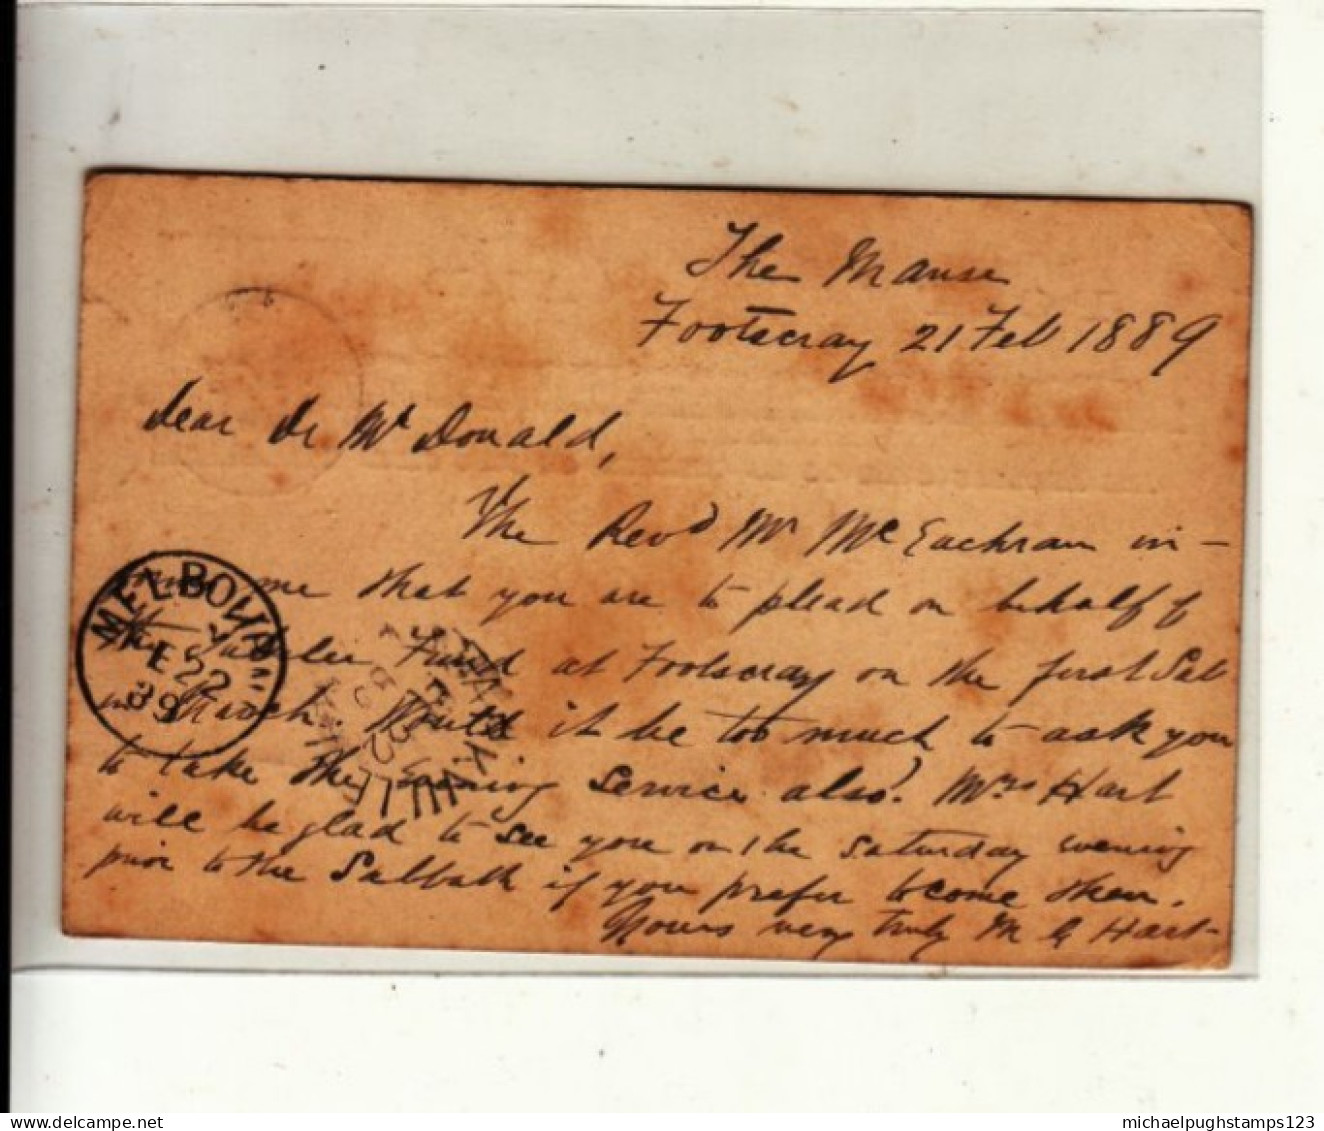 The Manse
Footscray 21 Feb 1889
Dear Dr Mc Donald,
The Revd Mr Mc Eachran in-
me that you are to plead on behalf of
the Jubilee Fund at Footscray on the first Sab
in March. Would it be too much to ask you
to take the Evening Service also? Mrs Hart
will be glad to see you on the Saturday evening
prior to the Sabbath if you prefer to come then.
Yours very truly M G Hart
MELBOURNE
FE 22
89
michaelpughstamps123